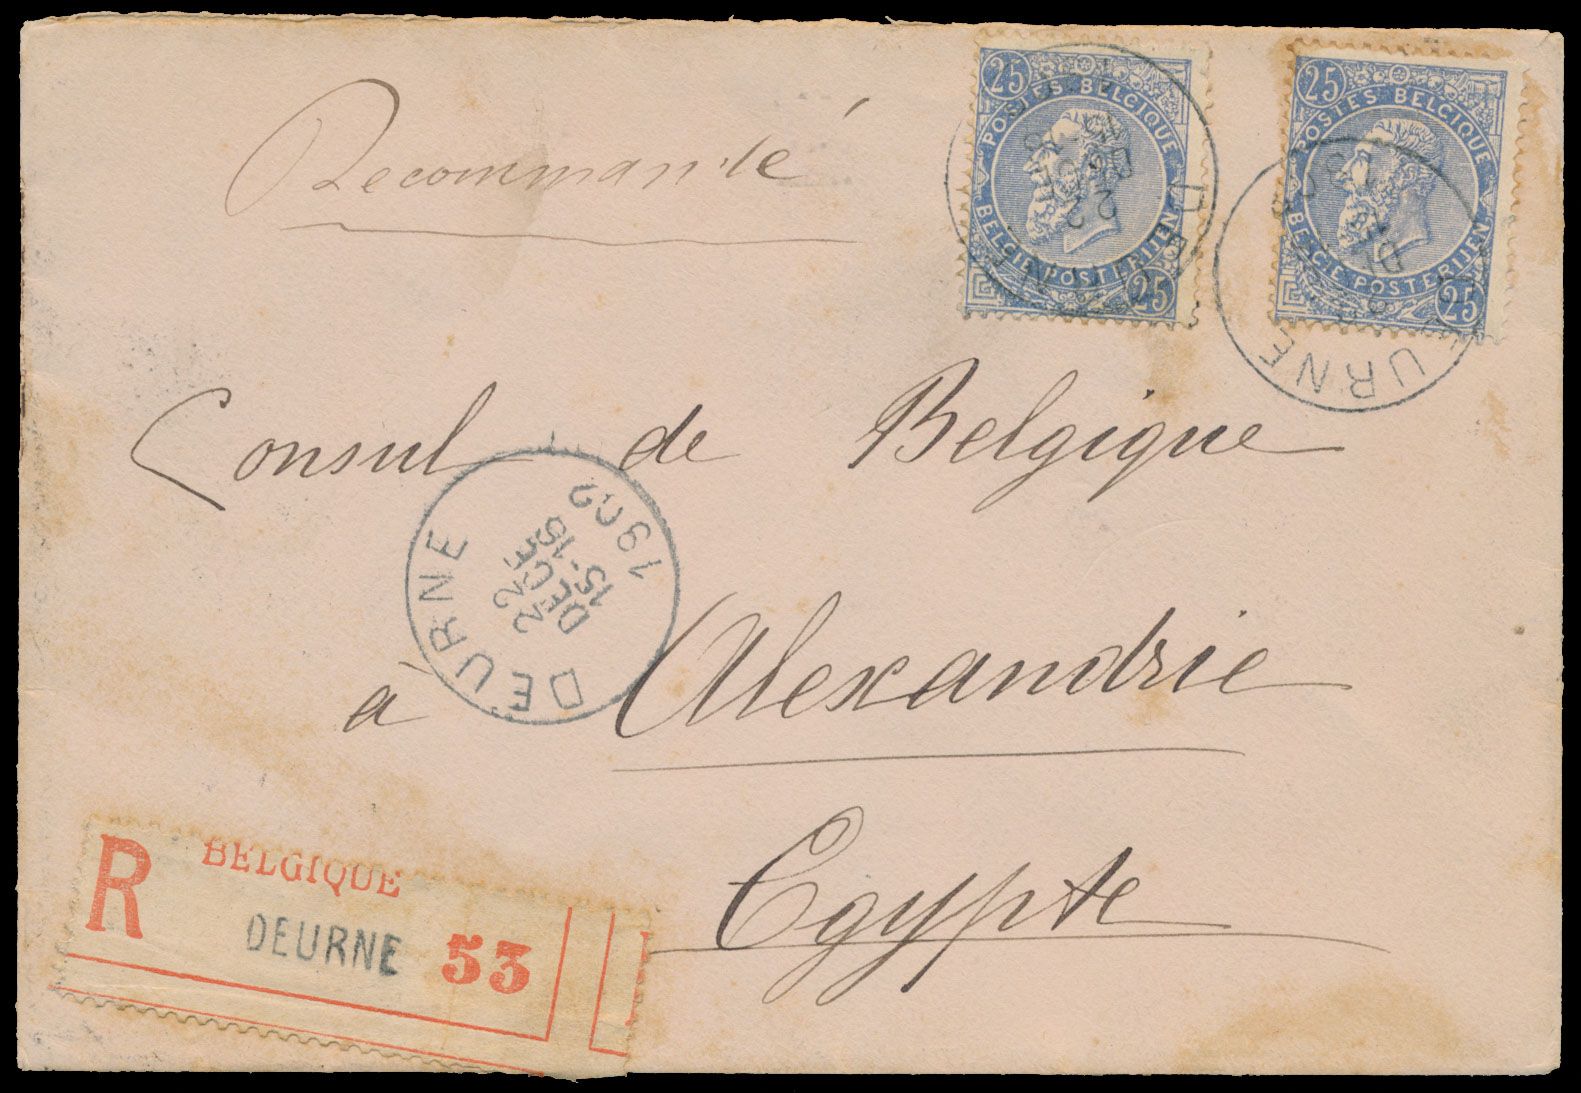 Recommandé
25
POSTES BELGIQUE
BELGIE POSTERIJEN
25
DEURNE
22
DECE
25
POSTES BELGIQUE
BELGIE POSTERIJEN
25
DEURNE
Consul de Belgique
à Alexandrie
Egypte
DEURNE
22
DECE
15-15
1902
R BELGIQUE
DEURNE 53